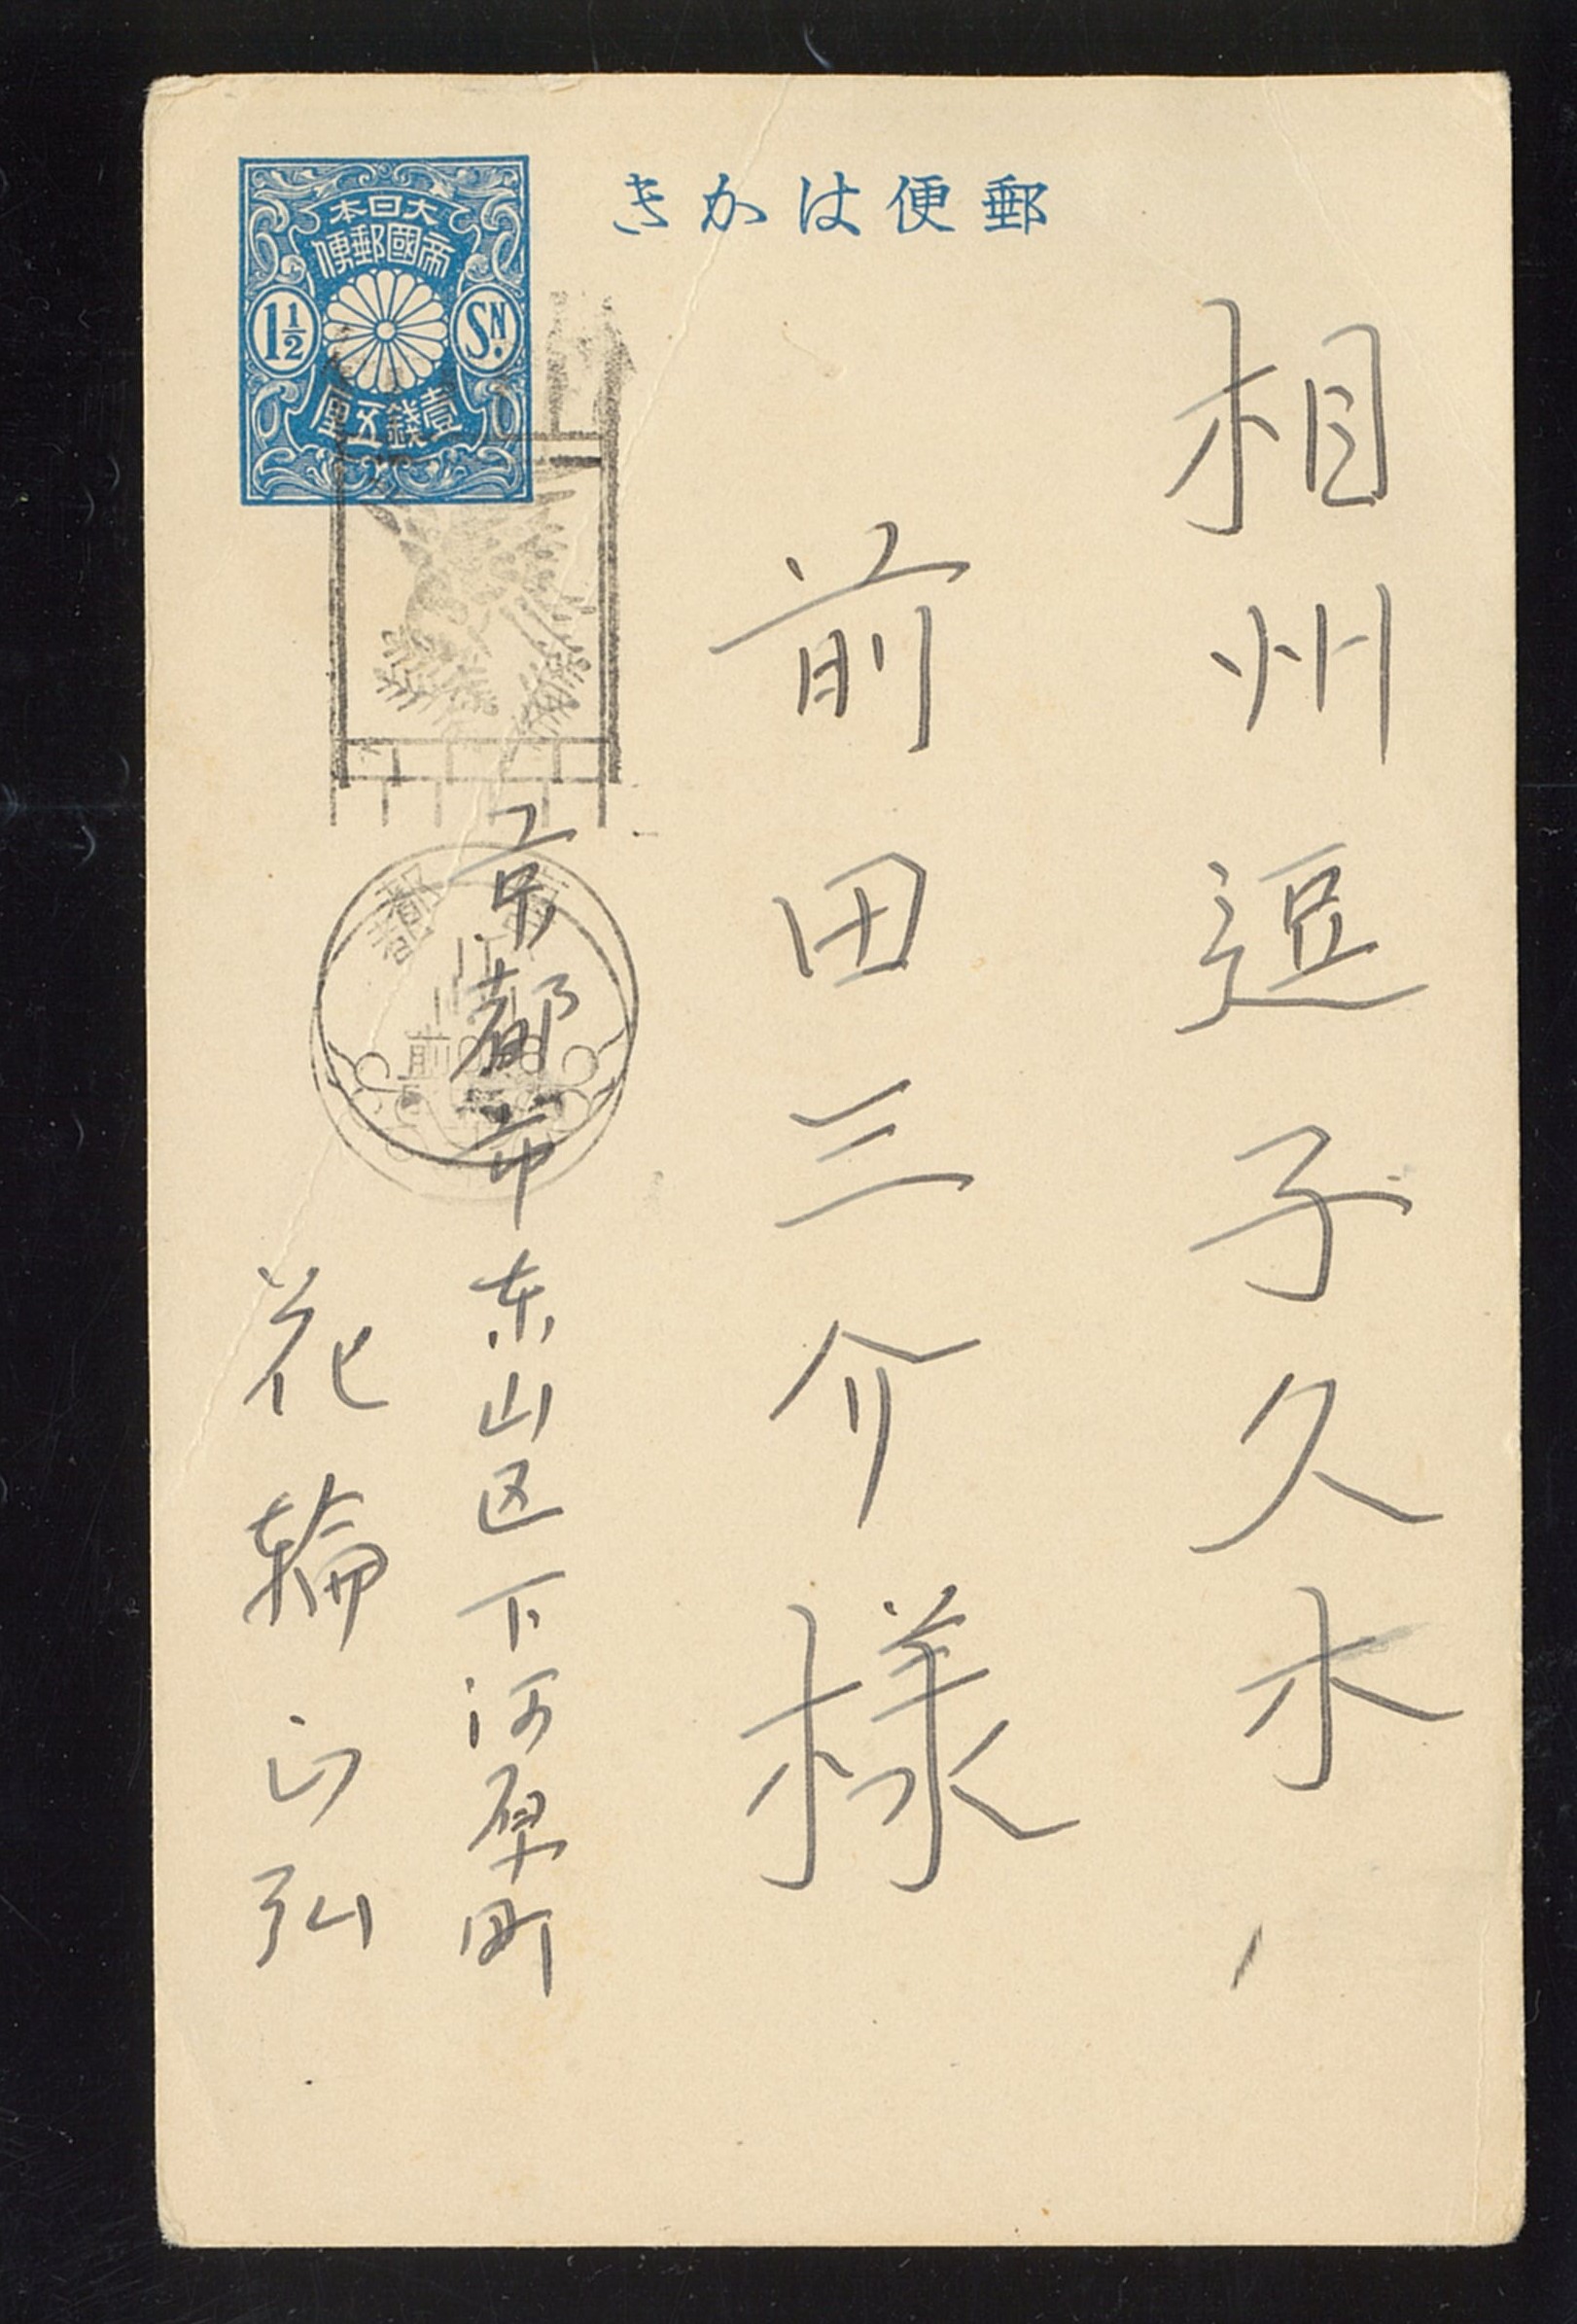 郵便はかき
大日本
帝國郵便
1½ Sɴ.
壹錢五厘
相州逗子久木
前田三介様
京都市东山区下河原町
花輪山弘
京都
前